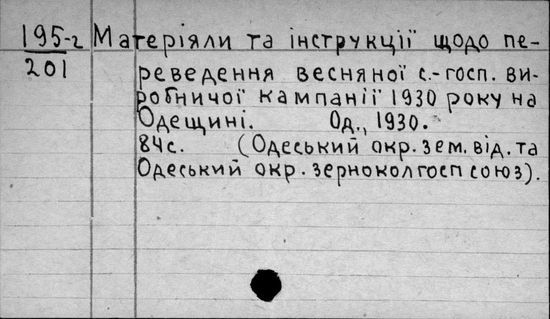 195-г Матеріяли та інструкції щодо пе-
201 реведення весняної с.-госп. ви-
робничої кампанії 1930 року на
Одещині. Од., 1930.
84с. (Одеський окр. зем. від. та
Одеський окр. зерноколгоспсоюз).